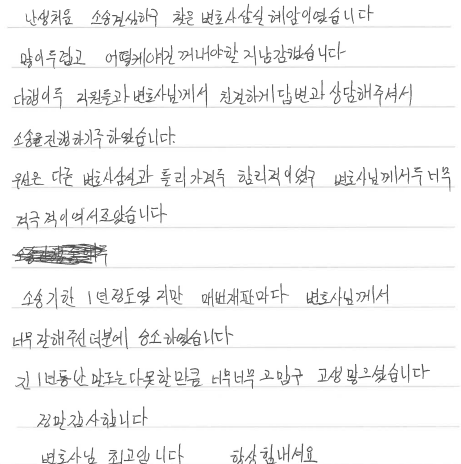 난생처음 소송결심하구 찾은 변호사삼실 혜암이였습니다
많이두렵고 어떻게얘길 꺼내야할지남감했습니다
다행이두 직원들과 변호사님께서 친견하게답변과 상담해주셔서
소송을진행하기루 하였습니다.
우선은 다른 변호사삼실과 틀리가격두 합리적이였구 변호사님께서두 너무
적극적이여서조았습니다
소송기한 1년정도였지만 매번재판마다 변호사님께서
너무잘해주신덕분에 승소하였습니다
긴 1년동안 말도는다못한만큼 너무너무 고맙구 고생많으셨습니다
정말감사합니다
변호사님 최고입니다 항상힘내서요